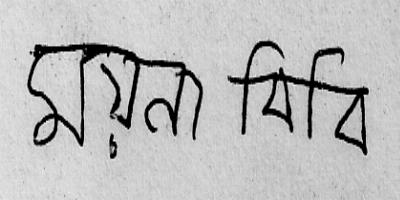 ময়না বিবি